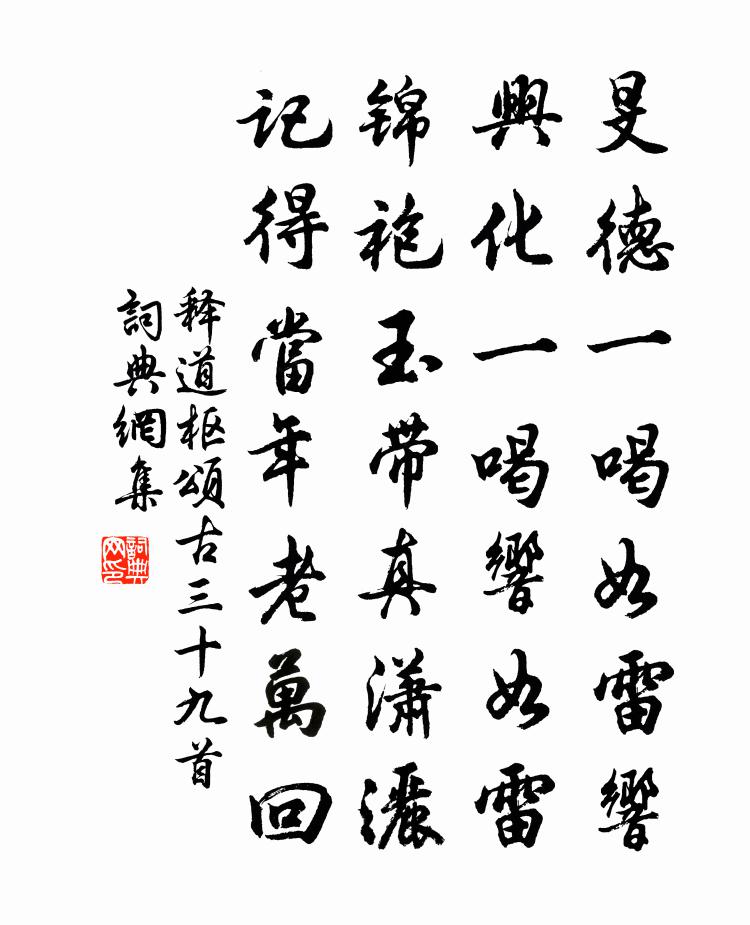 旻德一喝如雷響
興化一喝響如雷
錦袍玉帶真瀟灑
記得當年老萬回
释道枢頌古三十九首
詞典網集
詞典网印